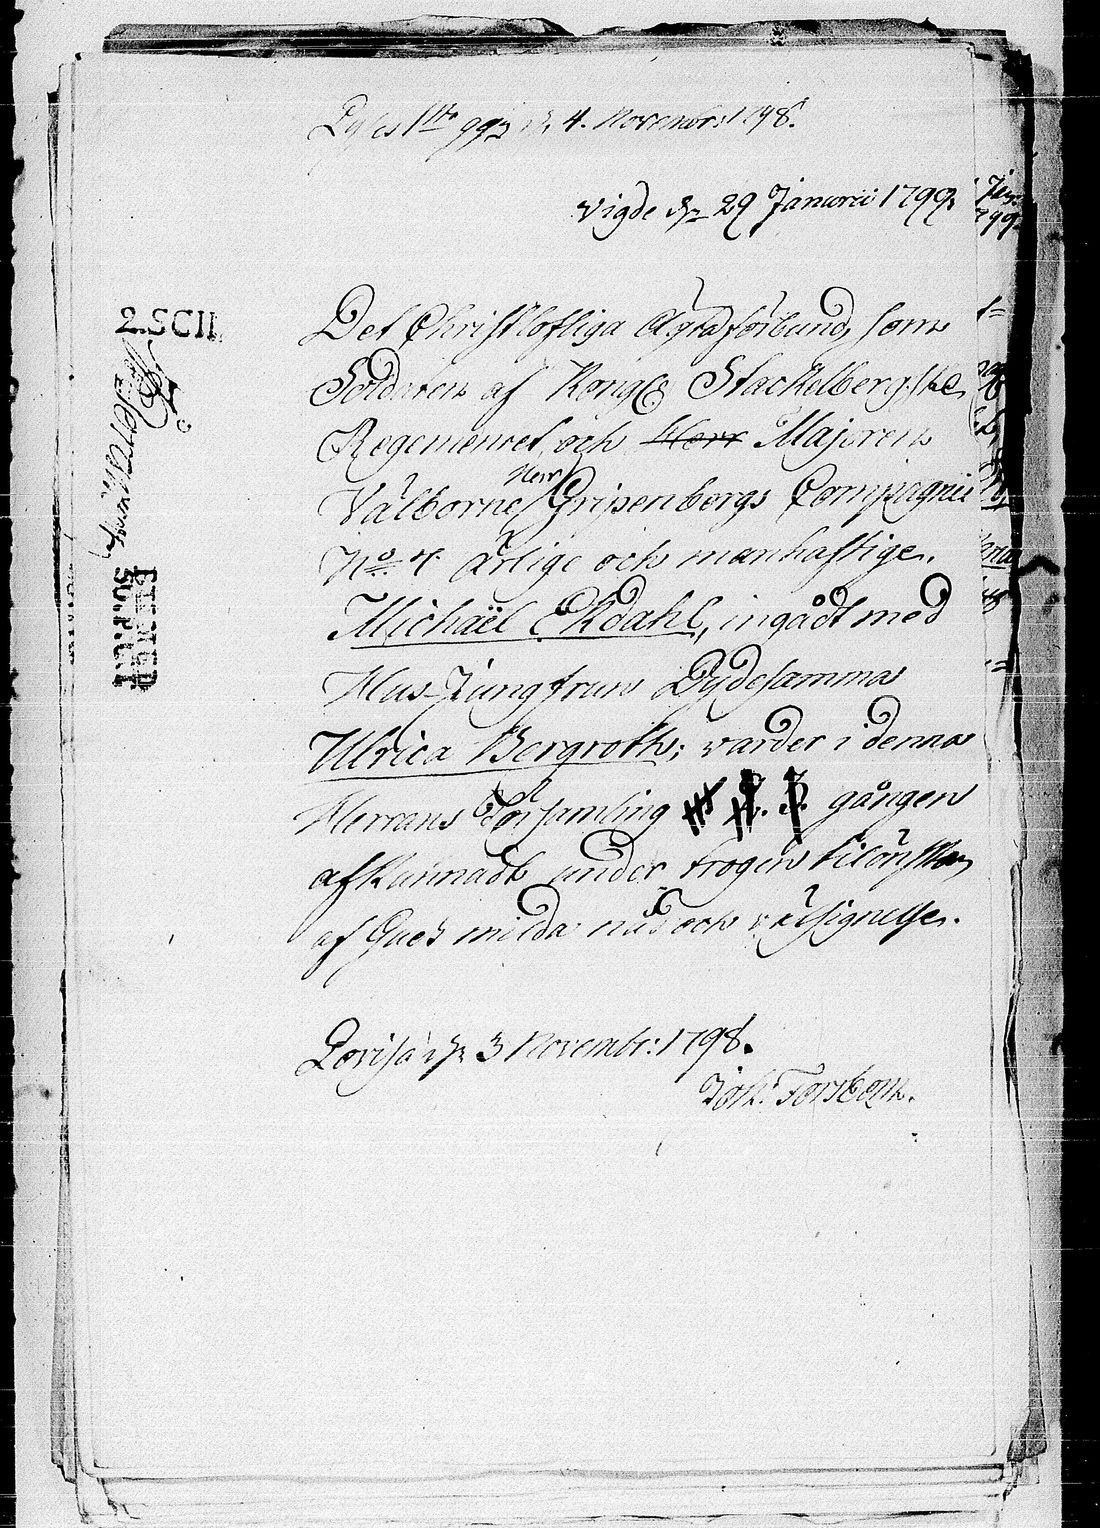 Lyses 1sta ggn d. 4. Novembr: 1798.
Vigde den 29 Januarii 1799.
Det Christloftiga Ägtaförbund, som
Soldaten af Kongl. Stackelbergska
Regementet och Herr Majoren
Herr
Välborne Gripenbergs Compagnie
No. 4. ärlige och manhaftige
Michaël Ekdahl, ingådt med
Hus-Jungfrun Dydesamma
Ulrica Bergroth; varder i denna
Herrans Församling gången
afkunnadt under trogen tilönskan
af Guds milda nåd och välsignelse.
Lovisa den 3 Novembr: 1798.
Joh: Forsbom.